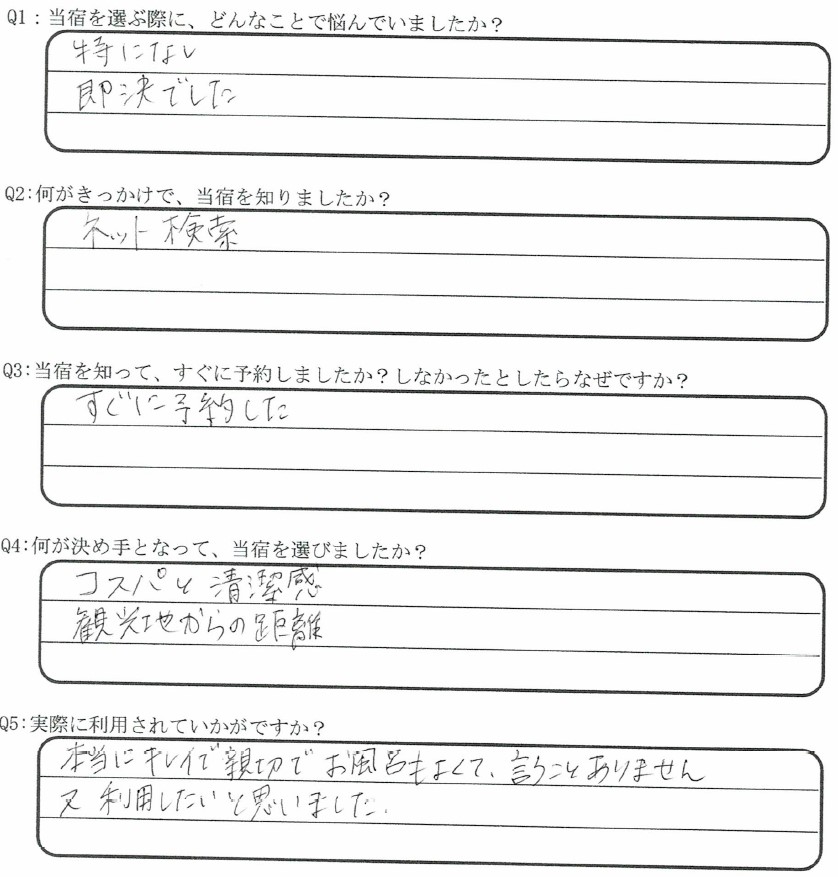 Q1：当宿を選ぶ際に、どんなことで悩んでいましたか？
特になし
即決でした
Q2：何がきっかけで、当宿を知りましたか？
ネット検索
Q3：当宿を知って、すぐに予約しましたか？しなかったとしたらなぜですか？
すぐに予約した
Q4：何が決め手となって、当宿を選びましたか？
コスパと清潔感
観光地からの距離
Q5：実際に利用されていかがですか？
本当にキレイで親切でお風呂もよくて、言うことありません
又利用したいと思いました.